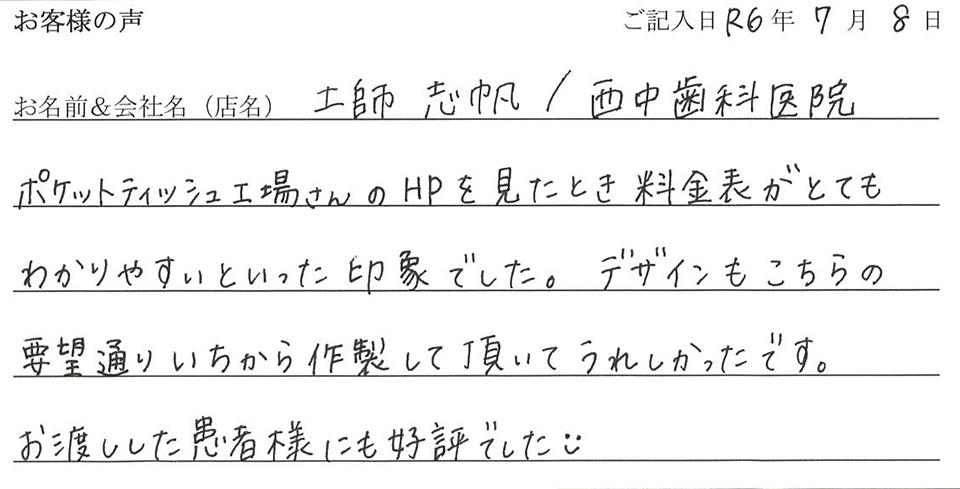 お客様の声 ご記入日 R6 年 7 月 8 日
お名前&会社名（店名） 土師 志帆 / 西中歯科医院
ポケットティッシュ工場さんのHPを見たとき料金表がとても
わかりやすいといった印象でした。デザインもこちらの
要望通りいちから作製して頂いてうれしかったです。
お渡しした患者様にも好評でした